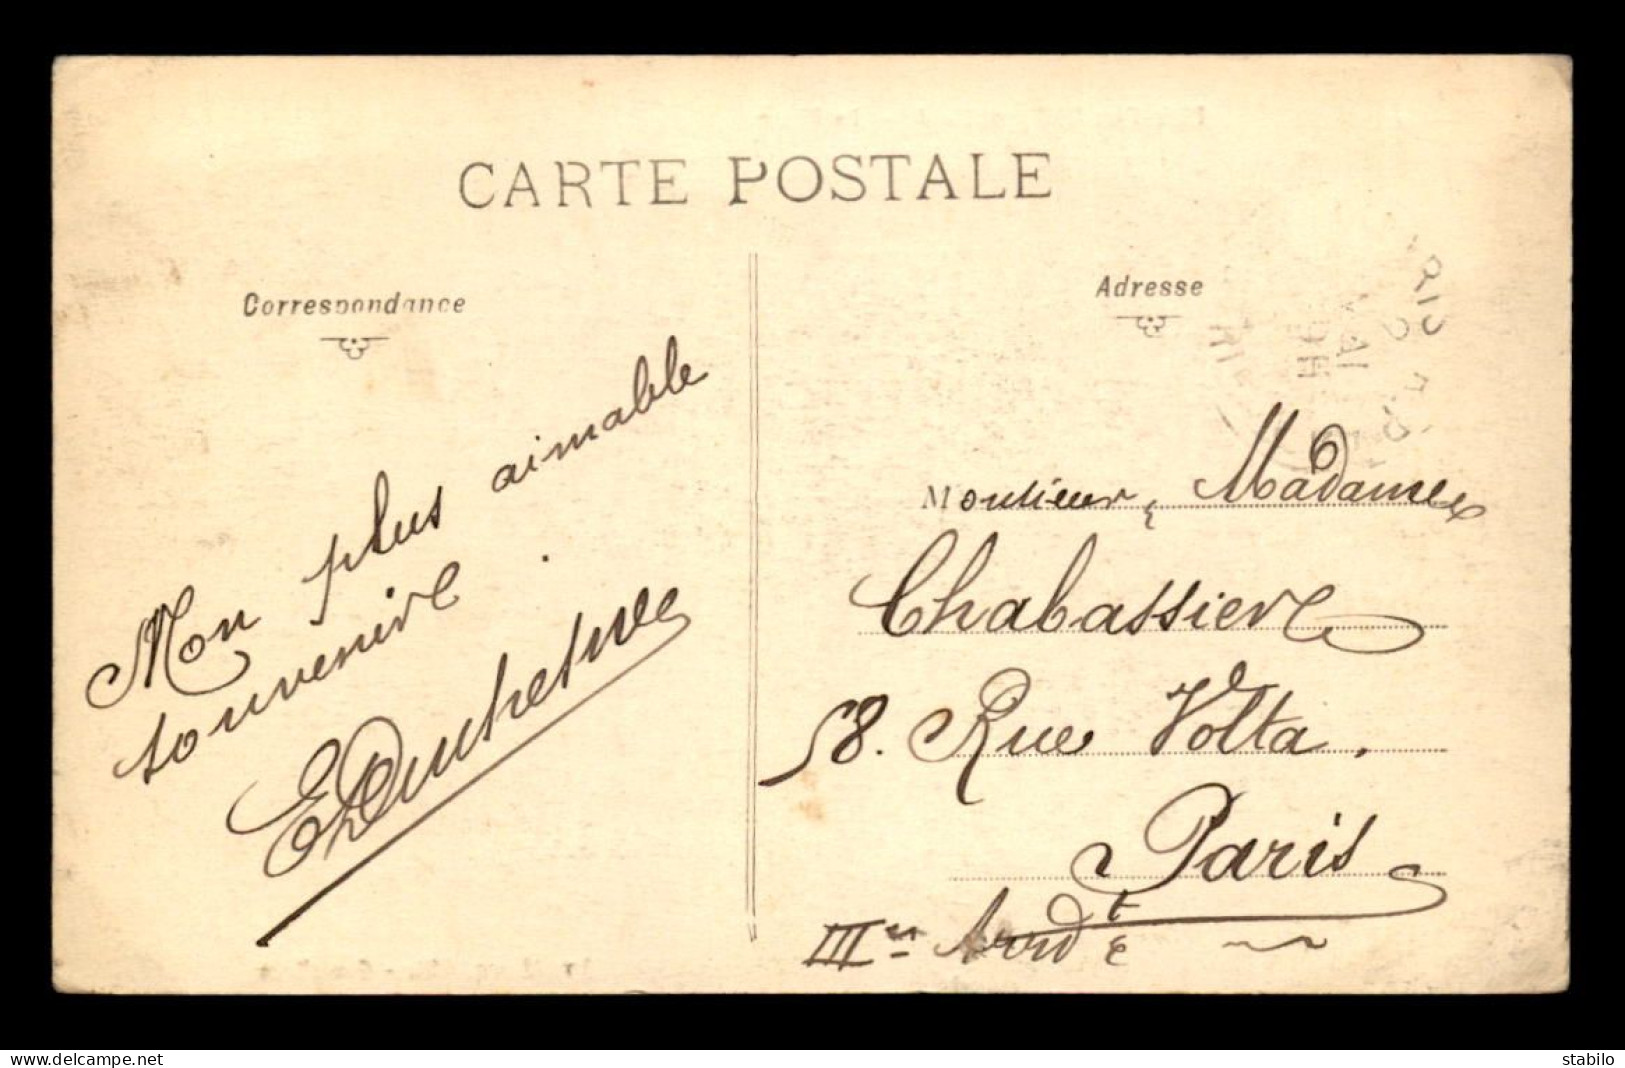 CARTE POSTALE
Correspondance
Adresse
Mon plus aimable
souvenire.
EDuchesne
Monsieur, Madame
Chabassiere
58. Rue Volta.
Paris
IIIe Arrd t
www.delcampe.net
stabilo